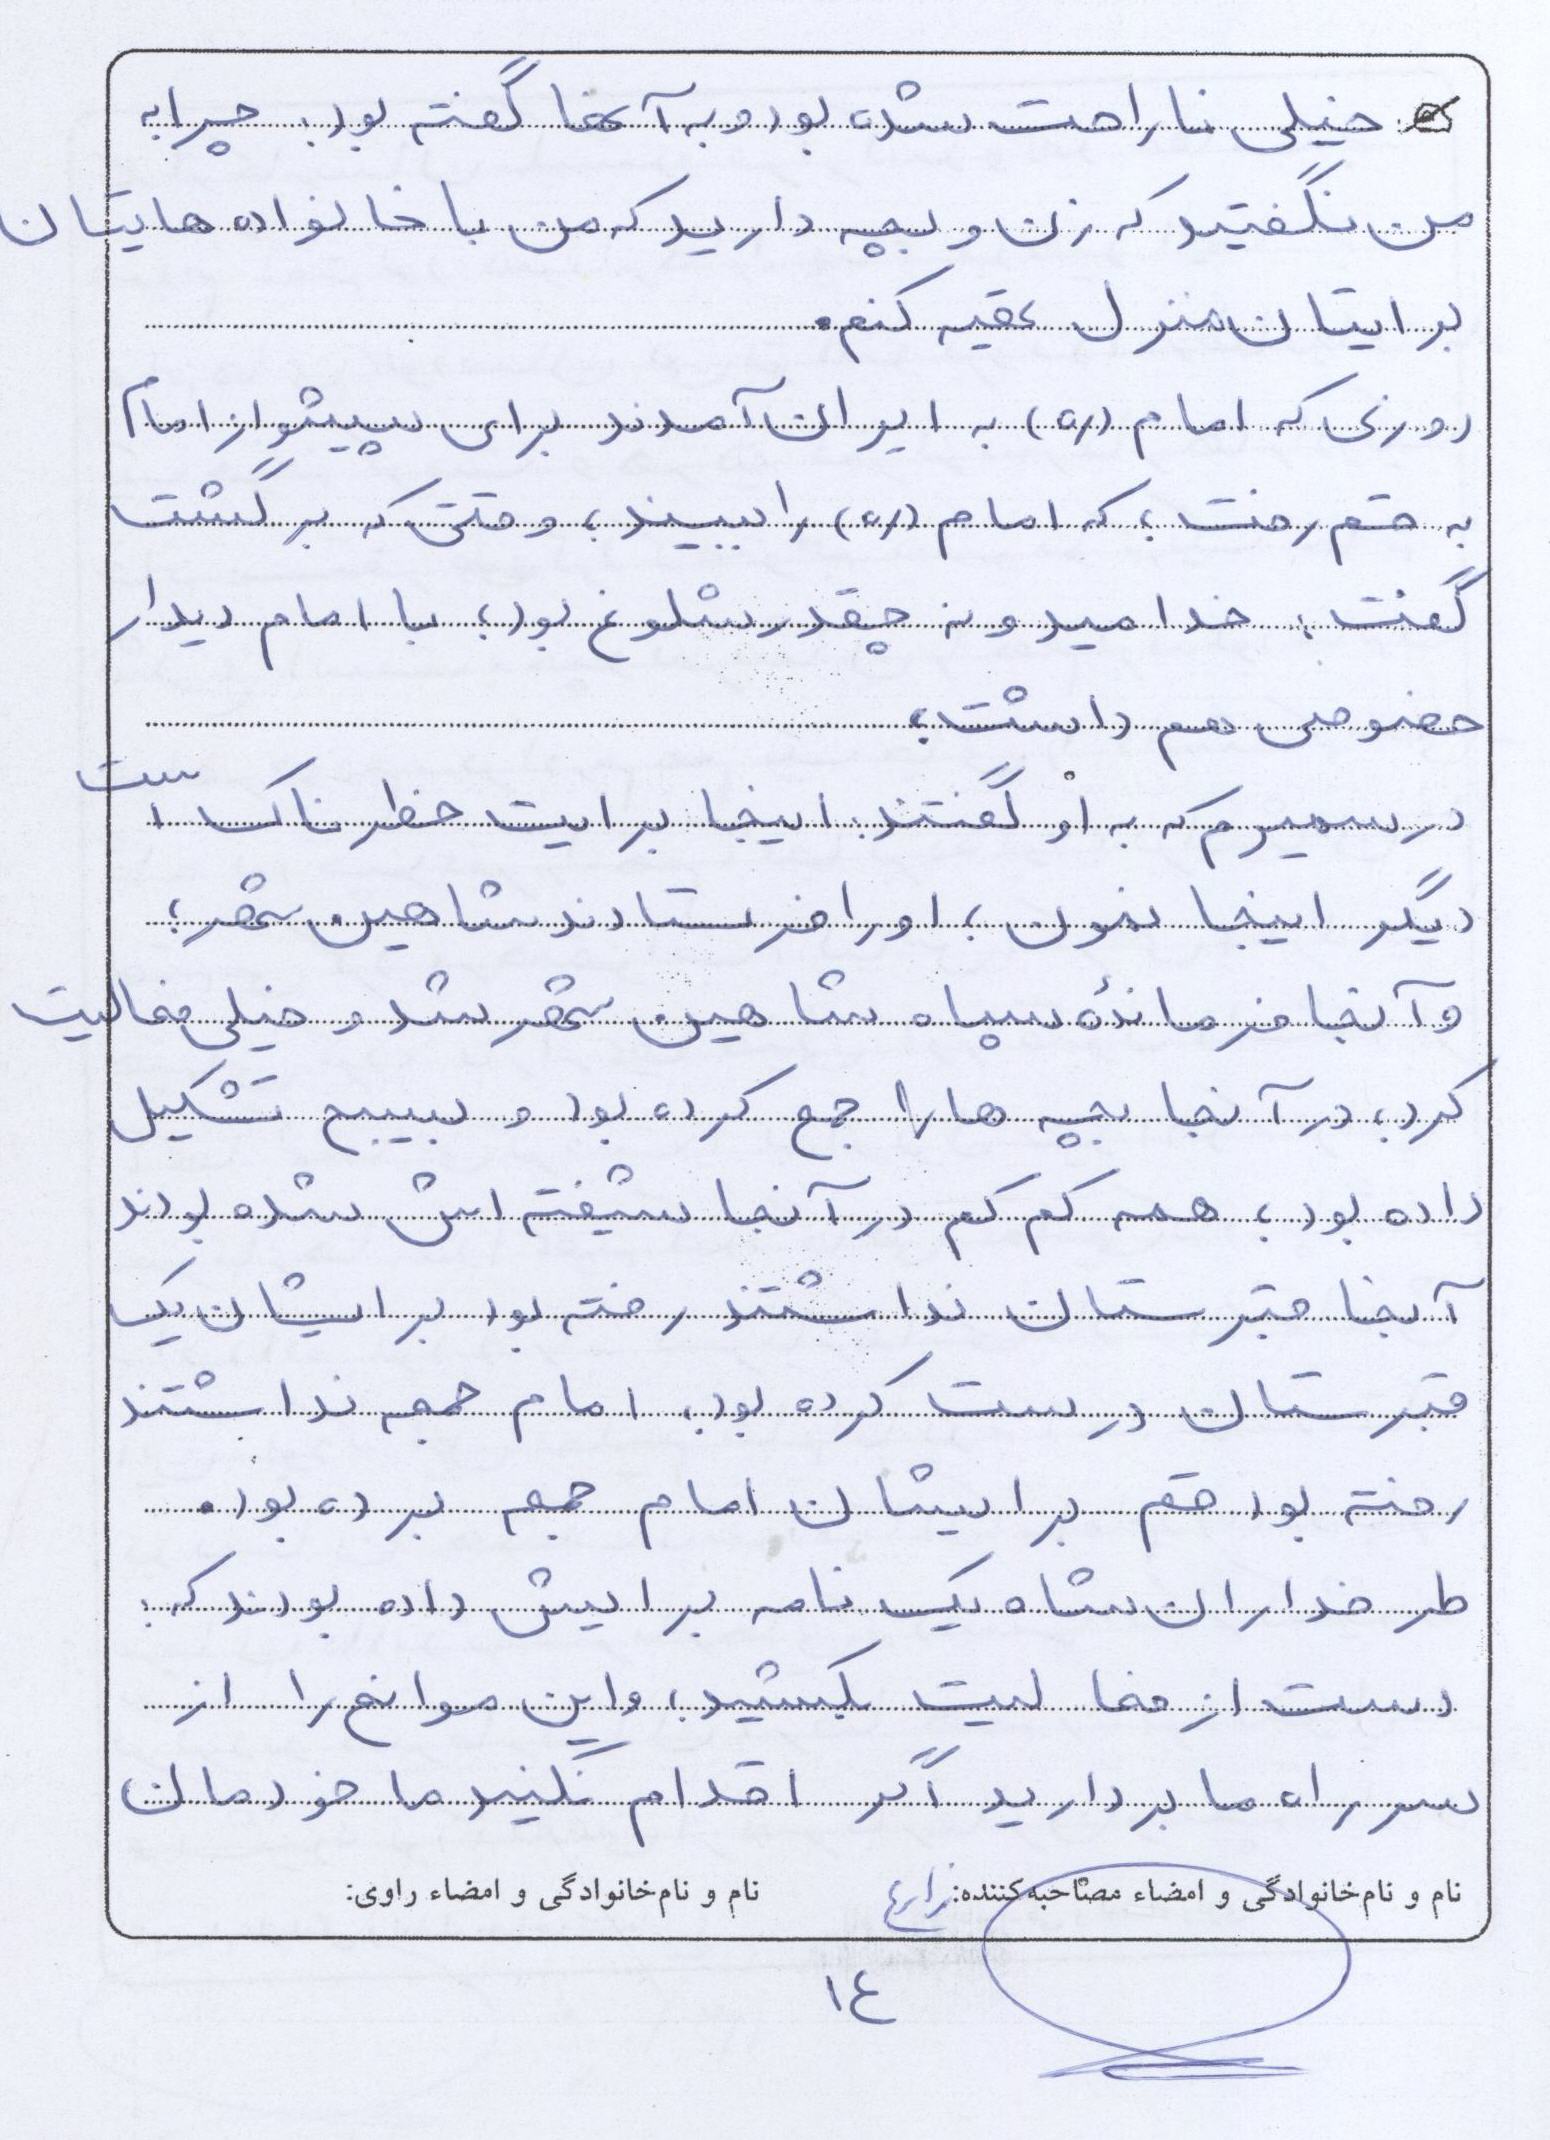 خیلی ناراحت شده بود و به آنها گفته بود، چرا به
من نگفتید که زن و بچه دارید که من با خانواده هایتان
برایتان منزل تهیه کنم.
روزی که امام (ره) به ایران آمدند برای پیشواز امام
به قم رفت؛ که امام (ره) را ببیند؛ وقتی که برگشت
گفت: خدا میدونه چقدر شلوغ بود؛ با امام دیدار
خصوصی هم داشت؛
در سمیرم که به او گفتند: اینجا برایت خطرناک است
دیگر اینجا نمون؛ او را فرستادند شاهین شهر؛
و آنجا فرماندهٔ سپاه شاهین شهر شد و خیلی فعالیت
کرد، در آنجا بچه ها را جمع کرده بود و بسیج تشکیل
داده بود؛ همه کم کم در آنجا شیفته اش شده بودند
آنجا قبرستان نداشتند رفته بود برایشان یک
قبرستان درست کرده بود، امام جمعه نداشتند
رفته بود قم برایشان امام جمعه برده بود.
طرفداران شاه یک نامه برایش داده بودند که:
دست از فعالیت بکشید؛ و این موانع را از
سر راه ما بردارید اگر اقدام نکنید ما خودمان
نام و نام‌خانوادگی و امضاء مصاحبه‌کننده: زارع
نام و نام‌خانوادگی و امضاء راوی:
١٤